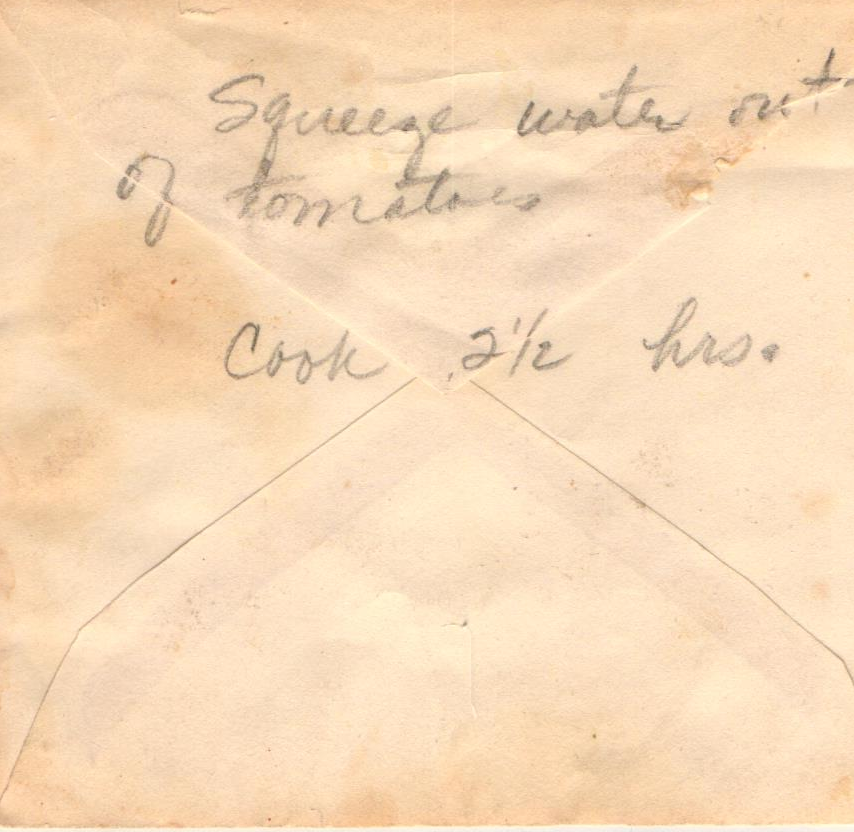 Squeeze water out
of tomatoes
Cook 2 1/2 hrs.